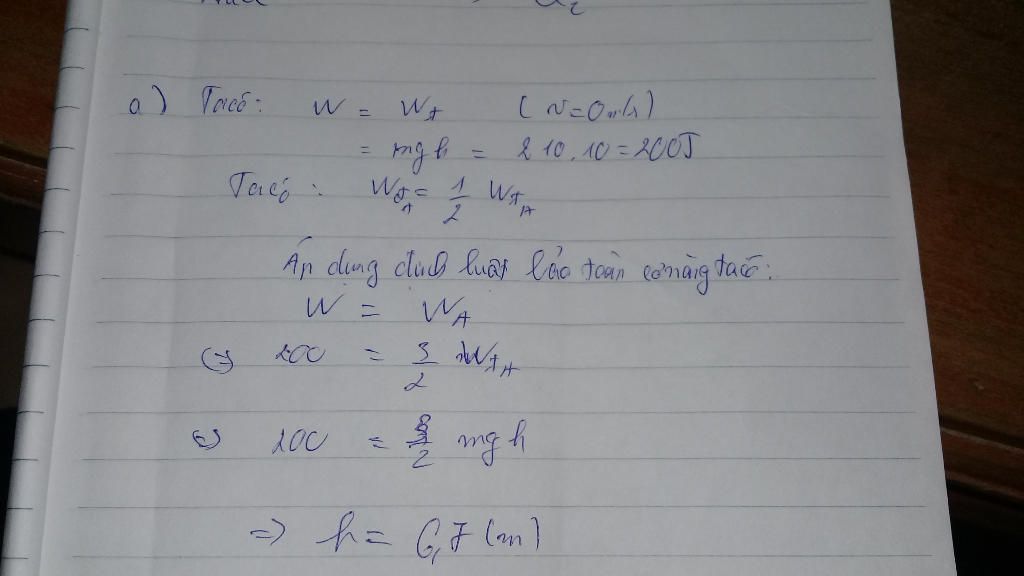 a) Ta có: W = Wt (v=0m/s)
= mgh = 2 10.10 = 200J
Ta có: WđA = 1/2 WtA
Áp dụng định luật bảo toàn cơ năng ta có:
W = WA
(=) 200 = 3/2 WtA
(=) 200 = 3/2 mgh
=> h = 6,7 (m)